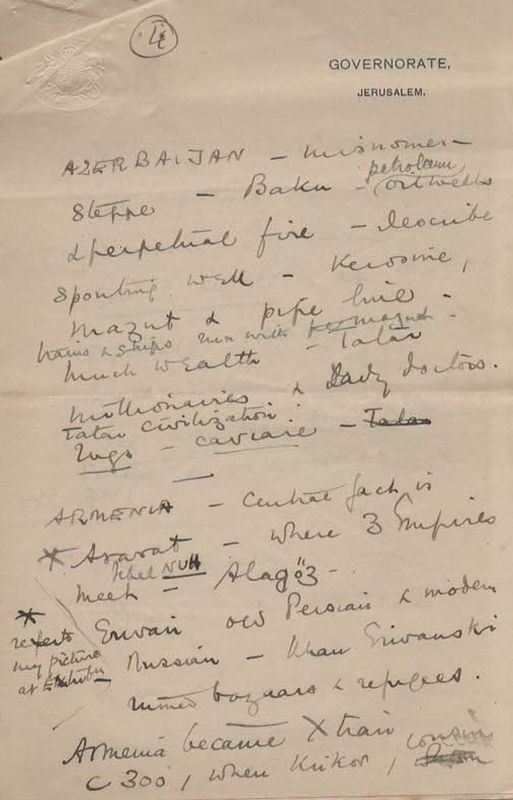 4
GOVERNORATE,
JERUSALEM.
AZERBAIJAN – misnomer –
petroleum
Steppe – Baku – (oil wells
& perpetual fire – describe
spouting well – Kerosine,
mazut & pipe line –
trains & ships run with mazut –
much wealth – Tatar
millionaires & Lady doctors.
Tatar civilization
Rugs – caviare – Tatar
ARMENIA – central fact is
* Ararat – where 3 Empires
Jebel NUH
meet – Alagöz –
* Erivan old Persian & modern
refers to
my picture – Russian – Khan Erivanski
at
ruined bazaars & refugees.
Armenia became Xtian
c 300, when Krikor,